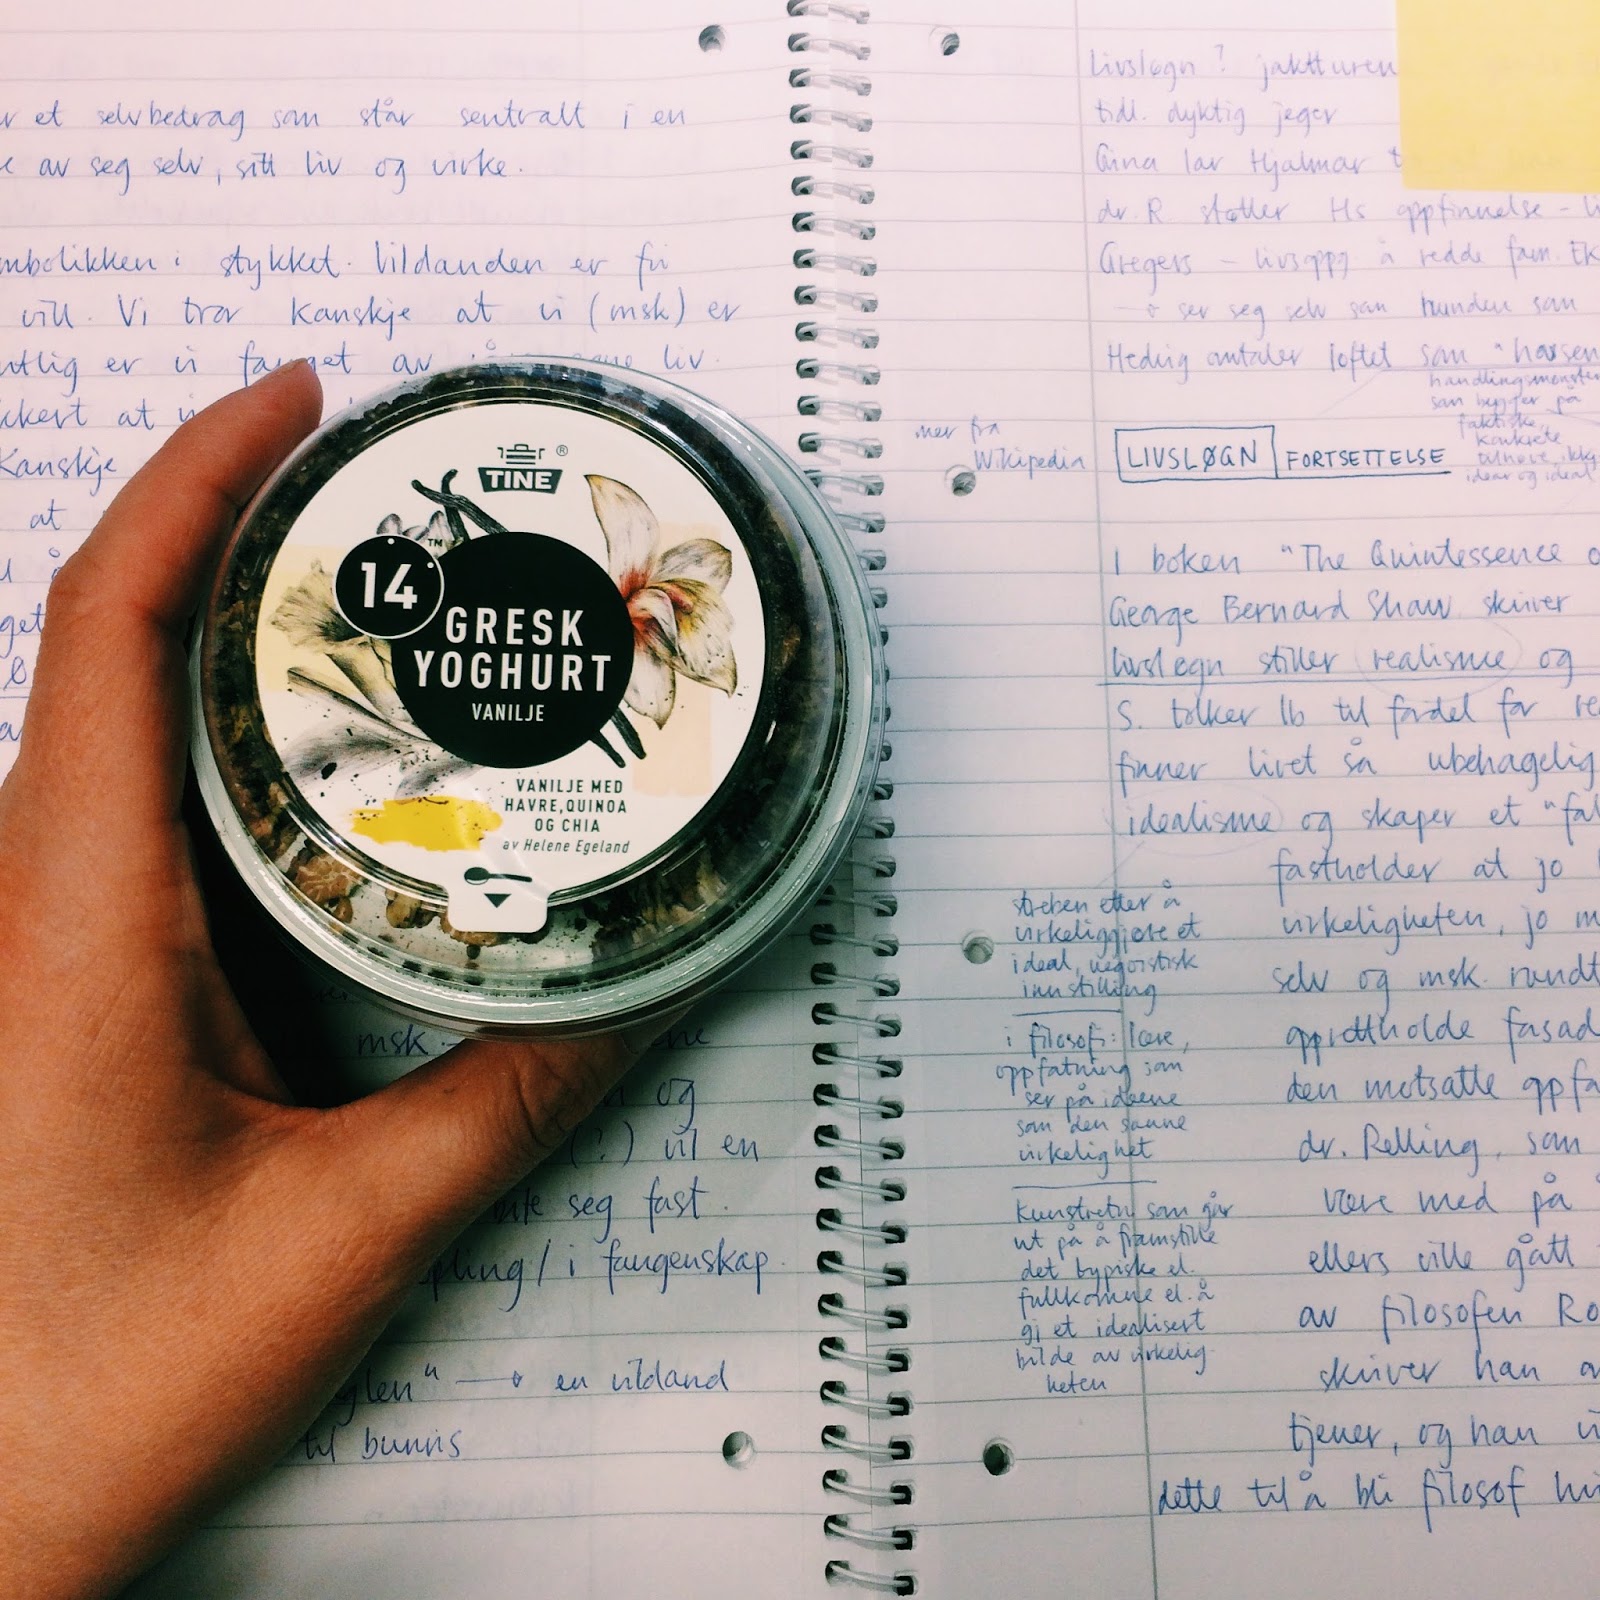 et selvbedrag som står sentralt i en
av seg selv, sitt liv og virke.
stykket. Vildanden er fri
vill. Vi tror kanskje at vi (msk) er
er vi fanget av liv.
at
Kanskje
at
TINE
®
14
™
GRESK
YOGHURT
VANILJE
VANILJE MED
HAVRE, QUINOA
OG CHIA
av Helene Egeland
msk.
og
(?) vil en
seg fast.
/ i fangenskap.
" → en vildand
til bunns
Livsløgn? jaktturen
tidl. dyktig jeger
Gina lar Hjalmar
dr. R støtter Hs oppfinnelse -
Gregers - livsoppg å redde fam. Ek
→ ser seg selv som hunden som
Hedvig omtaler loftet som "havsen
handlingsmønster
som bygger på
faktiske,
konkrete
idear og ideal
mer fra
Wikipedia
LIVSLØGN FORTSETTELSE
I boken "The Quintessence o
George Bernard Shaw skriver
livsløgn stiller realisme og
S. tolker Ib til fordel for re
finner livet så ubehagelig
idealisme og skaper et "fal
fastholder at jo
virkeligheten, jo m
selv og msk. rundt
opprettholde fasad
den motsatte oppfa
dr. Relling, som
være med på
ellers ville gått
av filosofen Ro
skriver han
tjener, og han
dette til å bli filosof
streben etter å
virkeliggjøre et
ideal, uegoistisk
innstilling
i filosofi: lære,
oppfatning som
ser på ideene
som den sanne
virkelighet
Kunstretn som går
ut på å framstille
det typiske el.
fullkomne el. å
gi et idealisert
bilde av virkelig-
heten